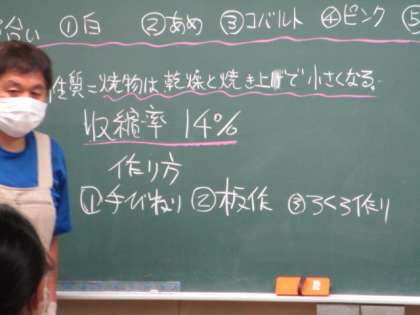 合い ①白 ②あめ ③コバルト ④ピンク ⑤
性質=焼物は乾燥と焼き上げで小さくなる。
収縮率 14%
作り方
①手びねり ②板作 ③ろくろ作り